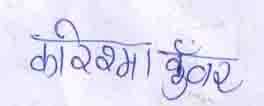 करिश्मा कुँवर